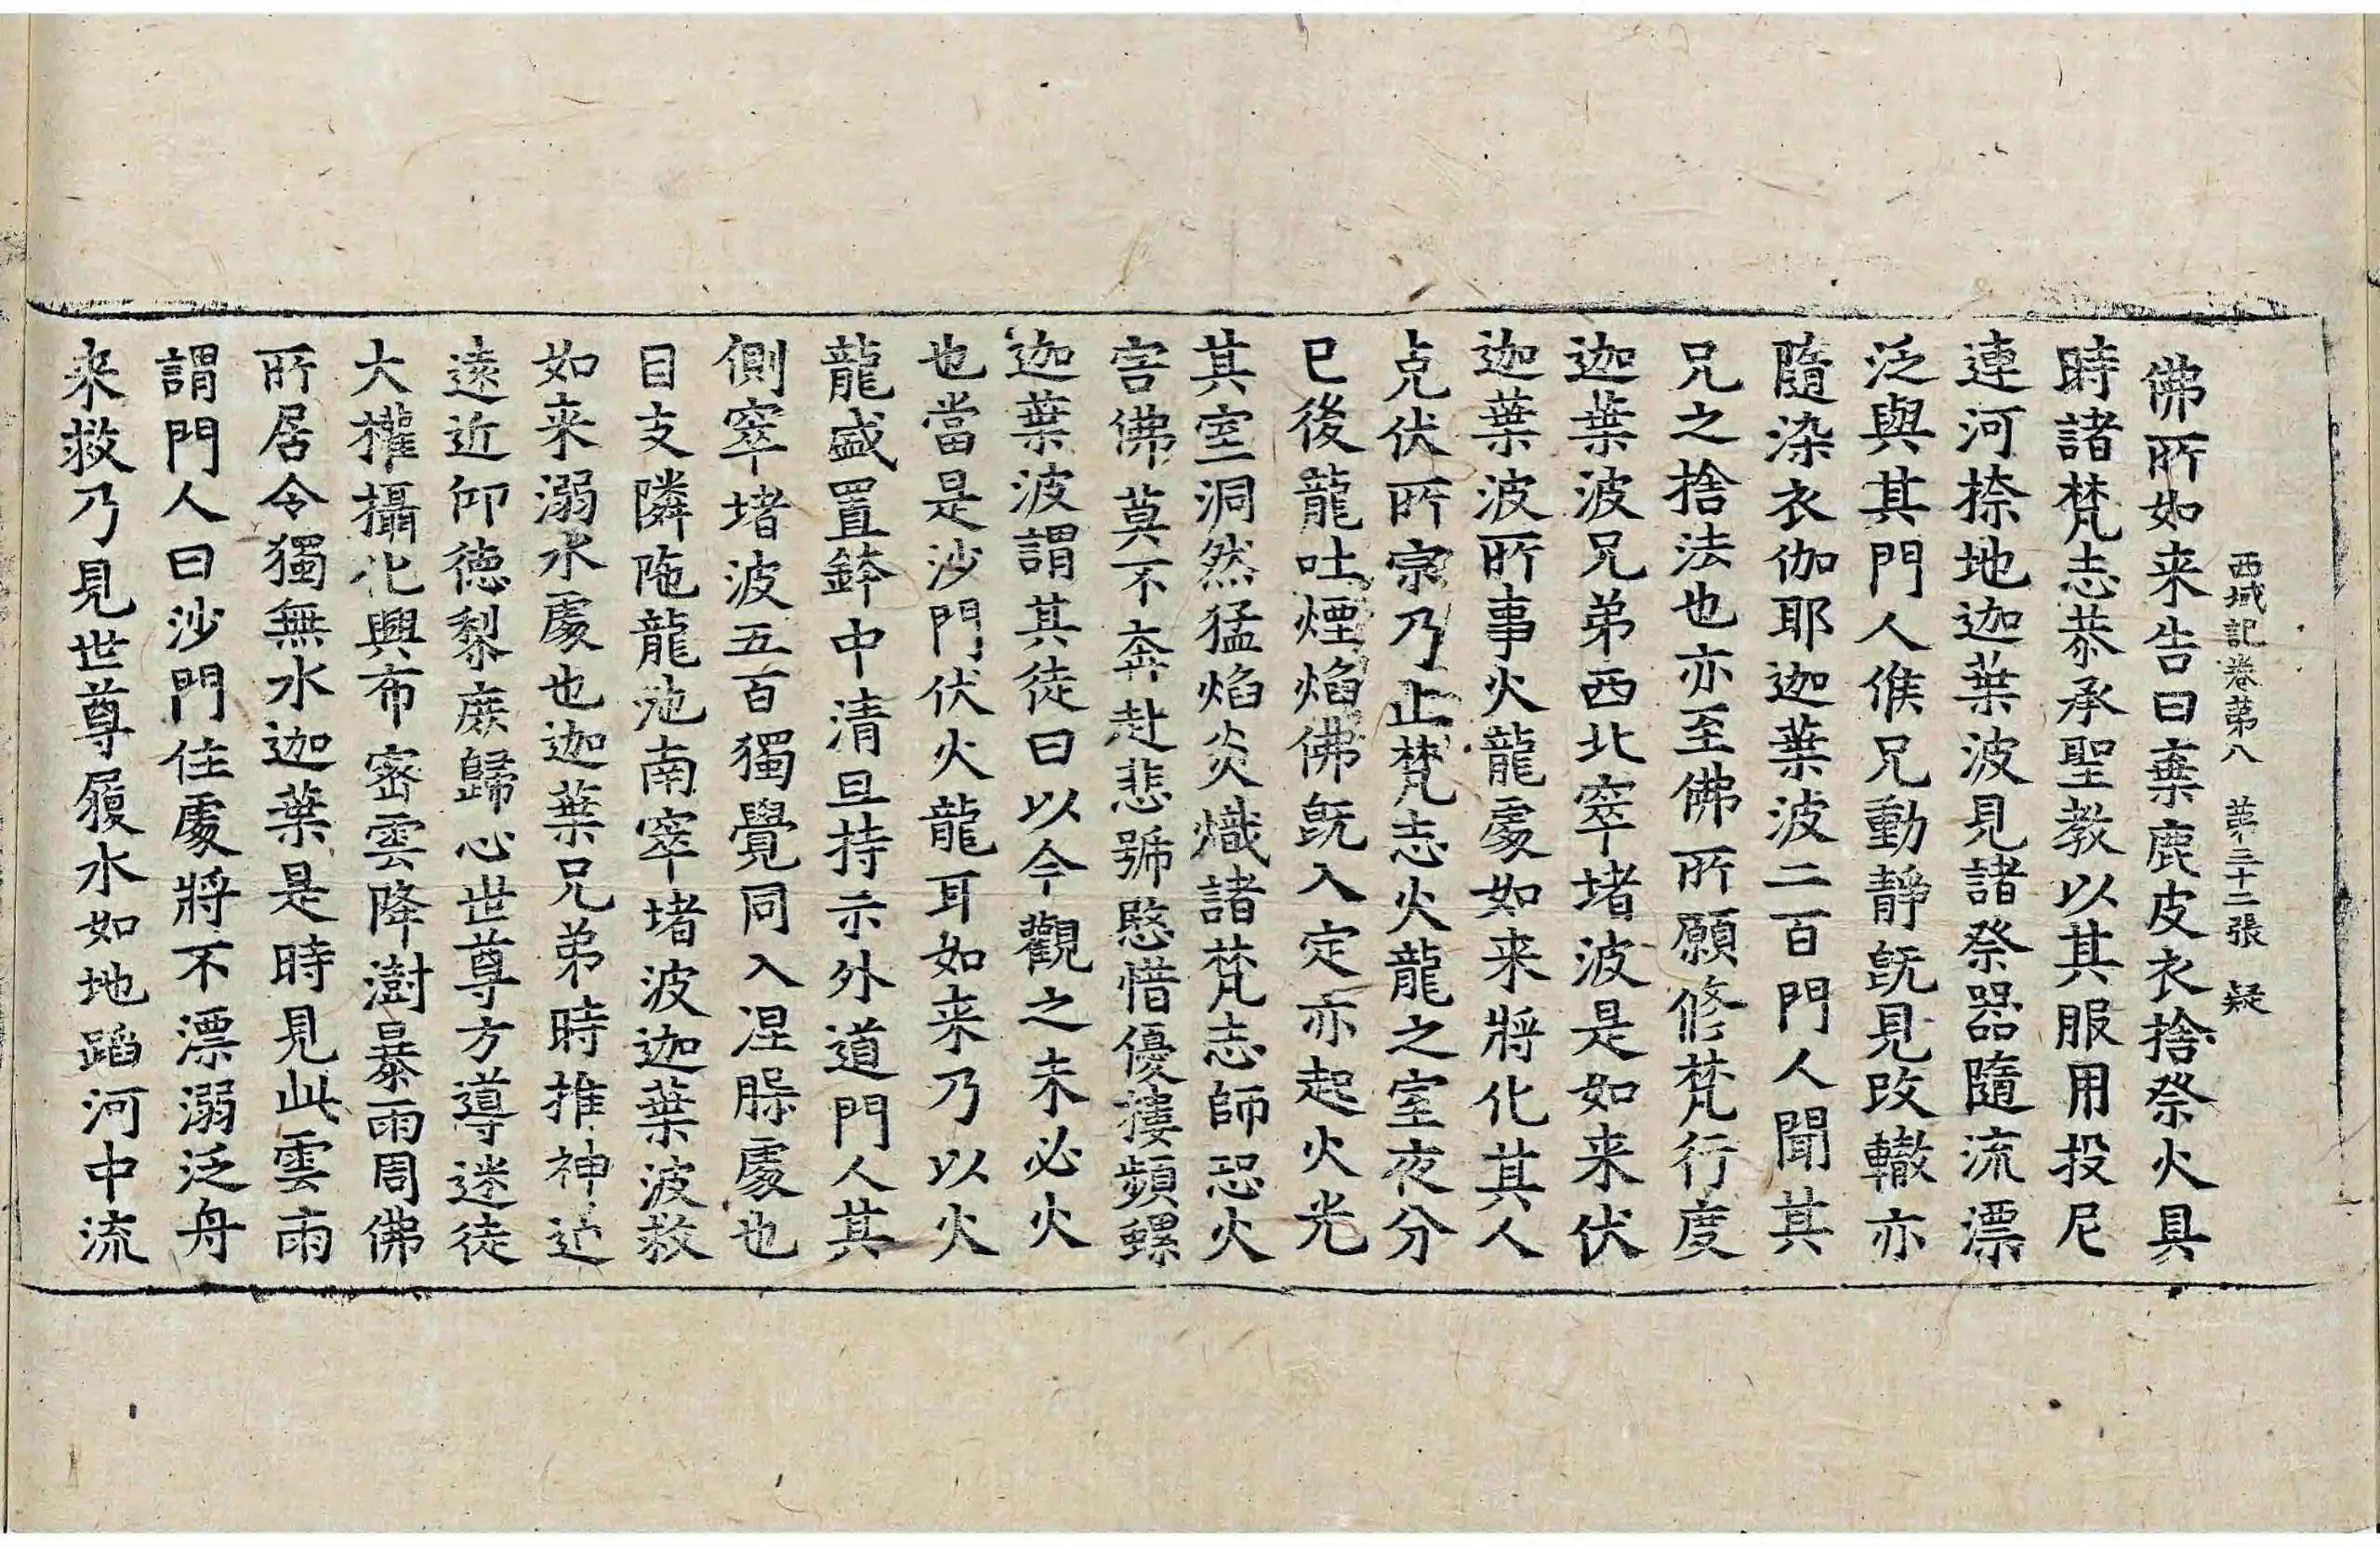 西域記卷第八　第三十二張　疑
佛所如来告曰棄鹿皮衣捨祭火具
時諸梵志恭承聖教以其服用投尼
連河捺地迦葉波見諸祭器隨流漂
泛與其門人候兄動靜旣見改轍亦
隨染衣伽耶迦葉波二百門人聞其
兄之捨法也亦至佛所願修梵行度
迦葉波兄弟西北窣堵波是如来伏
迦葉波所事火龍處如来將化其人
先伏所宗乃止梵志火龍之室夜分
已後龍吐煙焰佛旣入定亦起火光
其室洞然猛焰炎熾諸梵志師恐火
害佛莫不奔赴悲號愍惜優摟頻螺
迦葉波謂其徒曰以今觀之未必火
也當是沙門伏火龍耳如来乃以火
龍盛置鉢中清旦持示外道門人其
側窣堵波五百獨覺同入涅槃處也
目支隣陁龍池南窣堵波迦葉波救
如来溺水處也迦葉兄弟時推神
遠近仰德黎庶歸心世尊方導迷徒
大權攝化興布密雲降澍暴雨周佛
所居令獨無水迦葉是時見此雲雨
謂門人曰沙門住處將不漂溺泛舟
来救乃見世尊履水如地蹈河中流